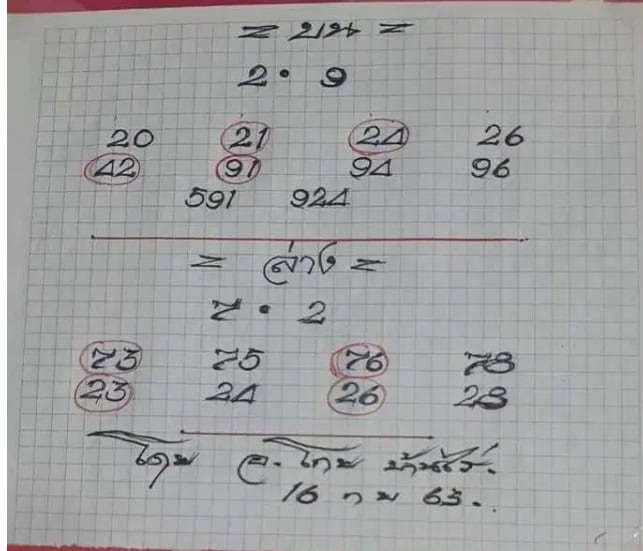 = บน =
2 • 9
20 21 24 26
42 91 94 96
591 924
= ล่าง =
7 • 2
73 75 76 78
23 24 26 28
โดย อ. โกย บ้านไร่.
16 ก พ 63.